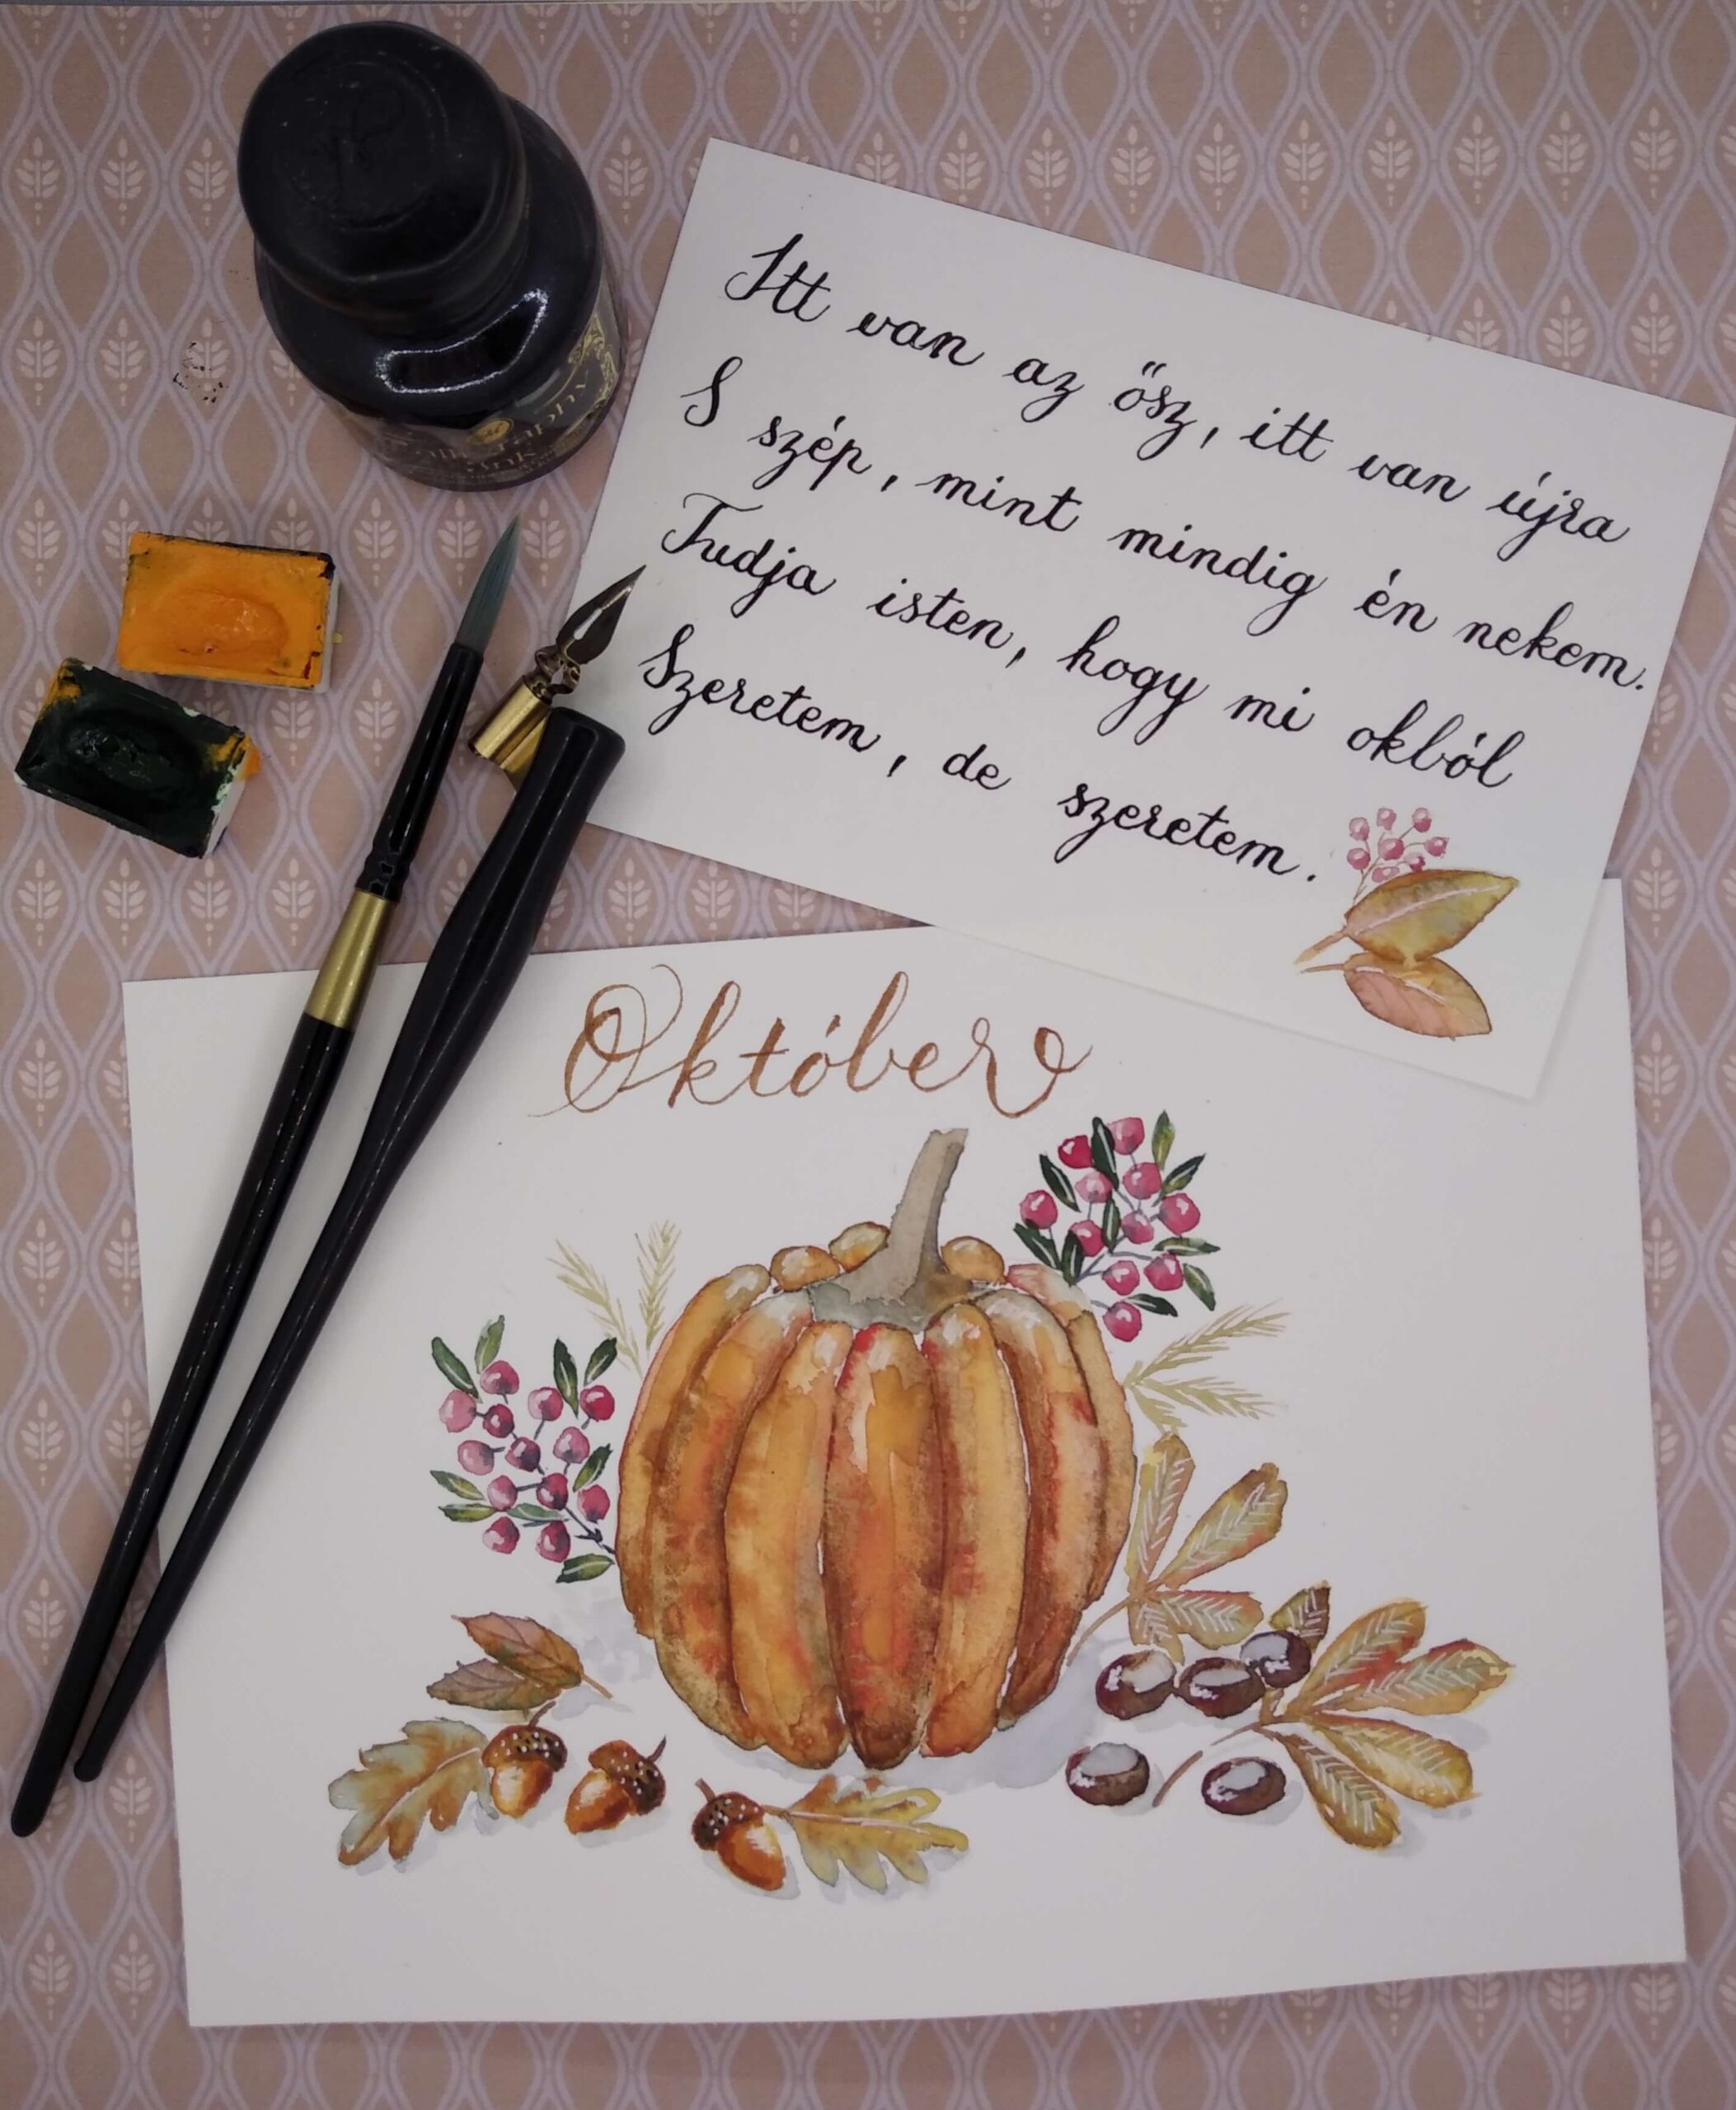 Itt van az ősz, itt van újra
S szép, mint mindig én nekem.
Tudja isten, hogy mi okból
Szeretem, de szeretem.
Október